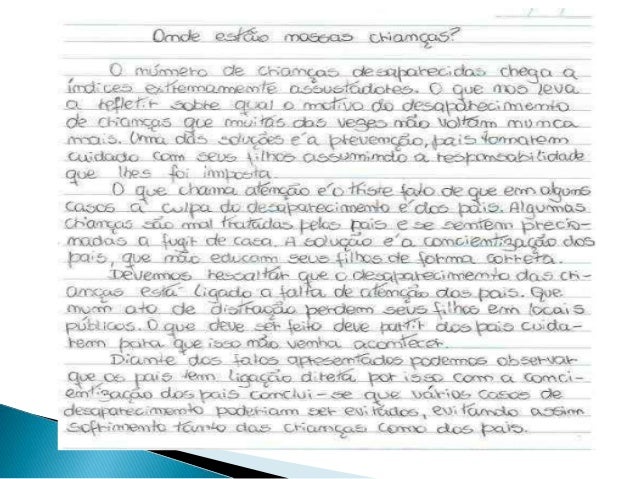 Onde estão nossas crianças?
O número de crianças desaparecidas chega a
índices extremamente assustadores. O que nos leva
a refletir sobre qual o motivo do desaparecimento
de crianças que muitas das vezes não voltam nunca
mais. Uma das soluções é a prevenção, pais tomarem
cuidado com seus filhos assumindo a responsabilidade
que lhes foi imposta.
O que chama atenção é o triste fato de que em alguns
casos a culpa do desaparecimento é dos pais. Algumas
crianças são mal tratadas pelos pais e se sentem precio-
nadas a fugir de casa. A solução é a concientização dos
pais, que não educam seus filhos de forma correta.
Devemos ressaltar que o desaparecimento das cri-
anças está ligado a falta de atenção dos pais. Que
num ato de distração perdem seus filhos em locais
públicos. O que deve ser feito deve partir dos pais cuida-
rem para que isso não venha acontecer.
Diante dos fatos apresentados podemos observar
que os pais tem ligação direta por isso com a conci-
entização dos pais conclui-se que vários casos de
desaparecimento poderiam ser evitados, evitando assim
sofrimento tanto das crianças como dos pais.